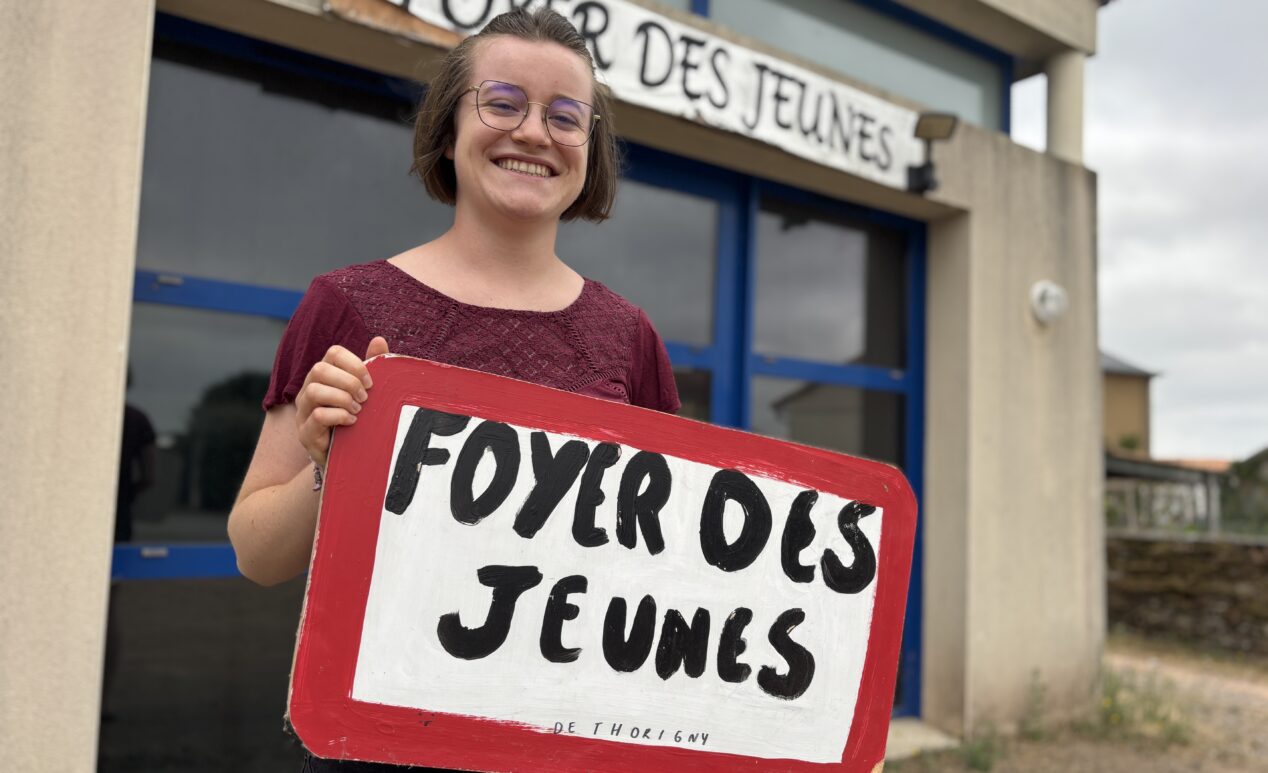 FOYER DES JEUNES
FOYER DES
JEUNES
DE THORIGNY